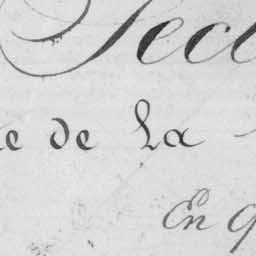 Sect
e de la
En q